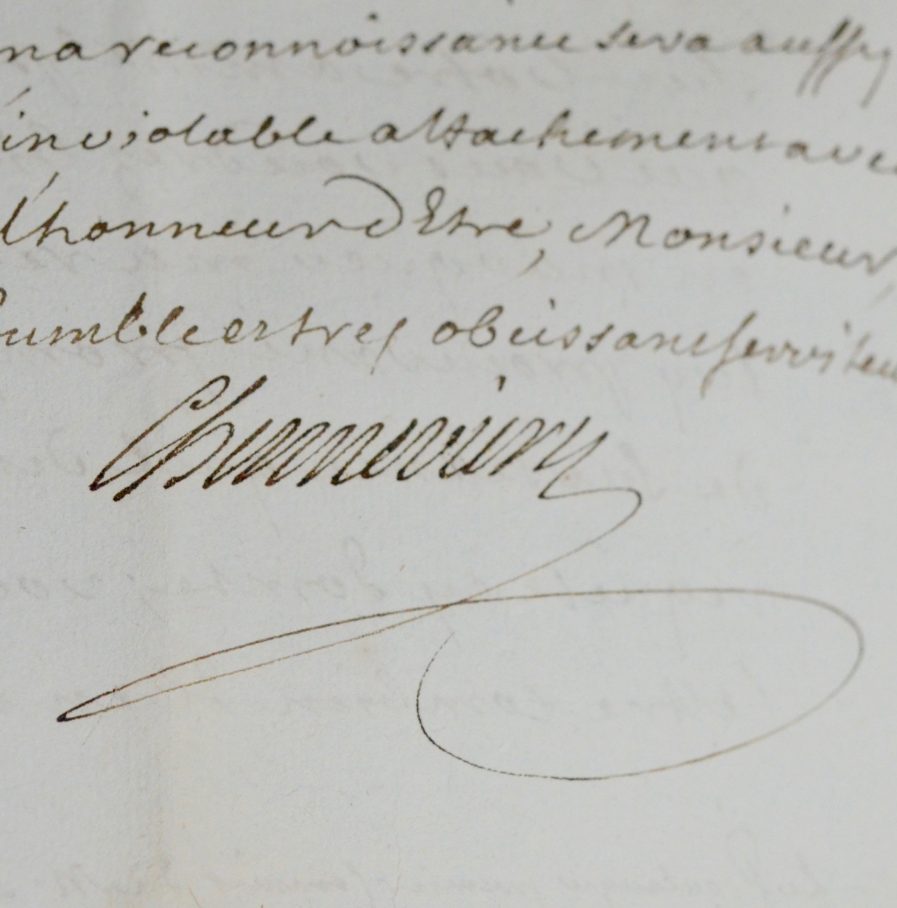 ma reconnoissance sera aussy
inviolable attachement avec
l'honneur d'Etre, Monsieur,
humble et tres obeissant serviteur
Chennevieres